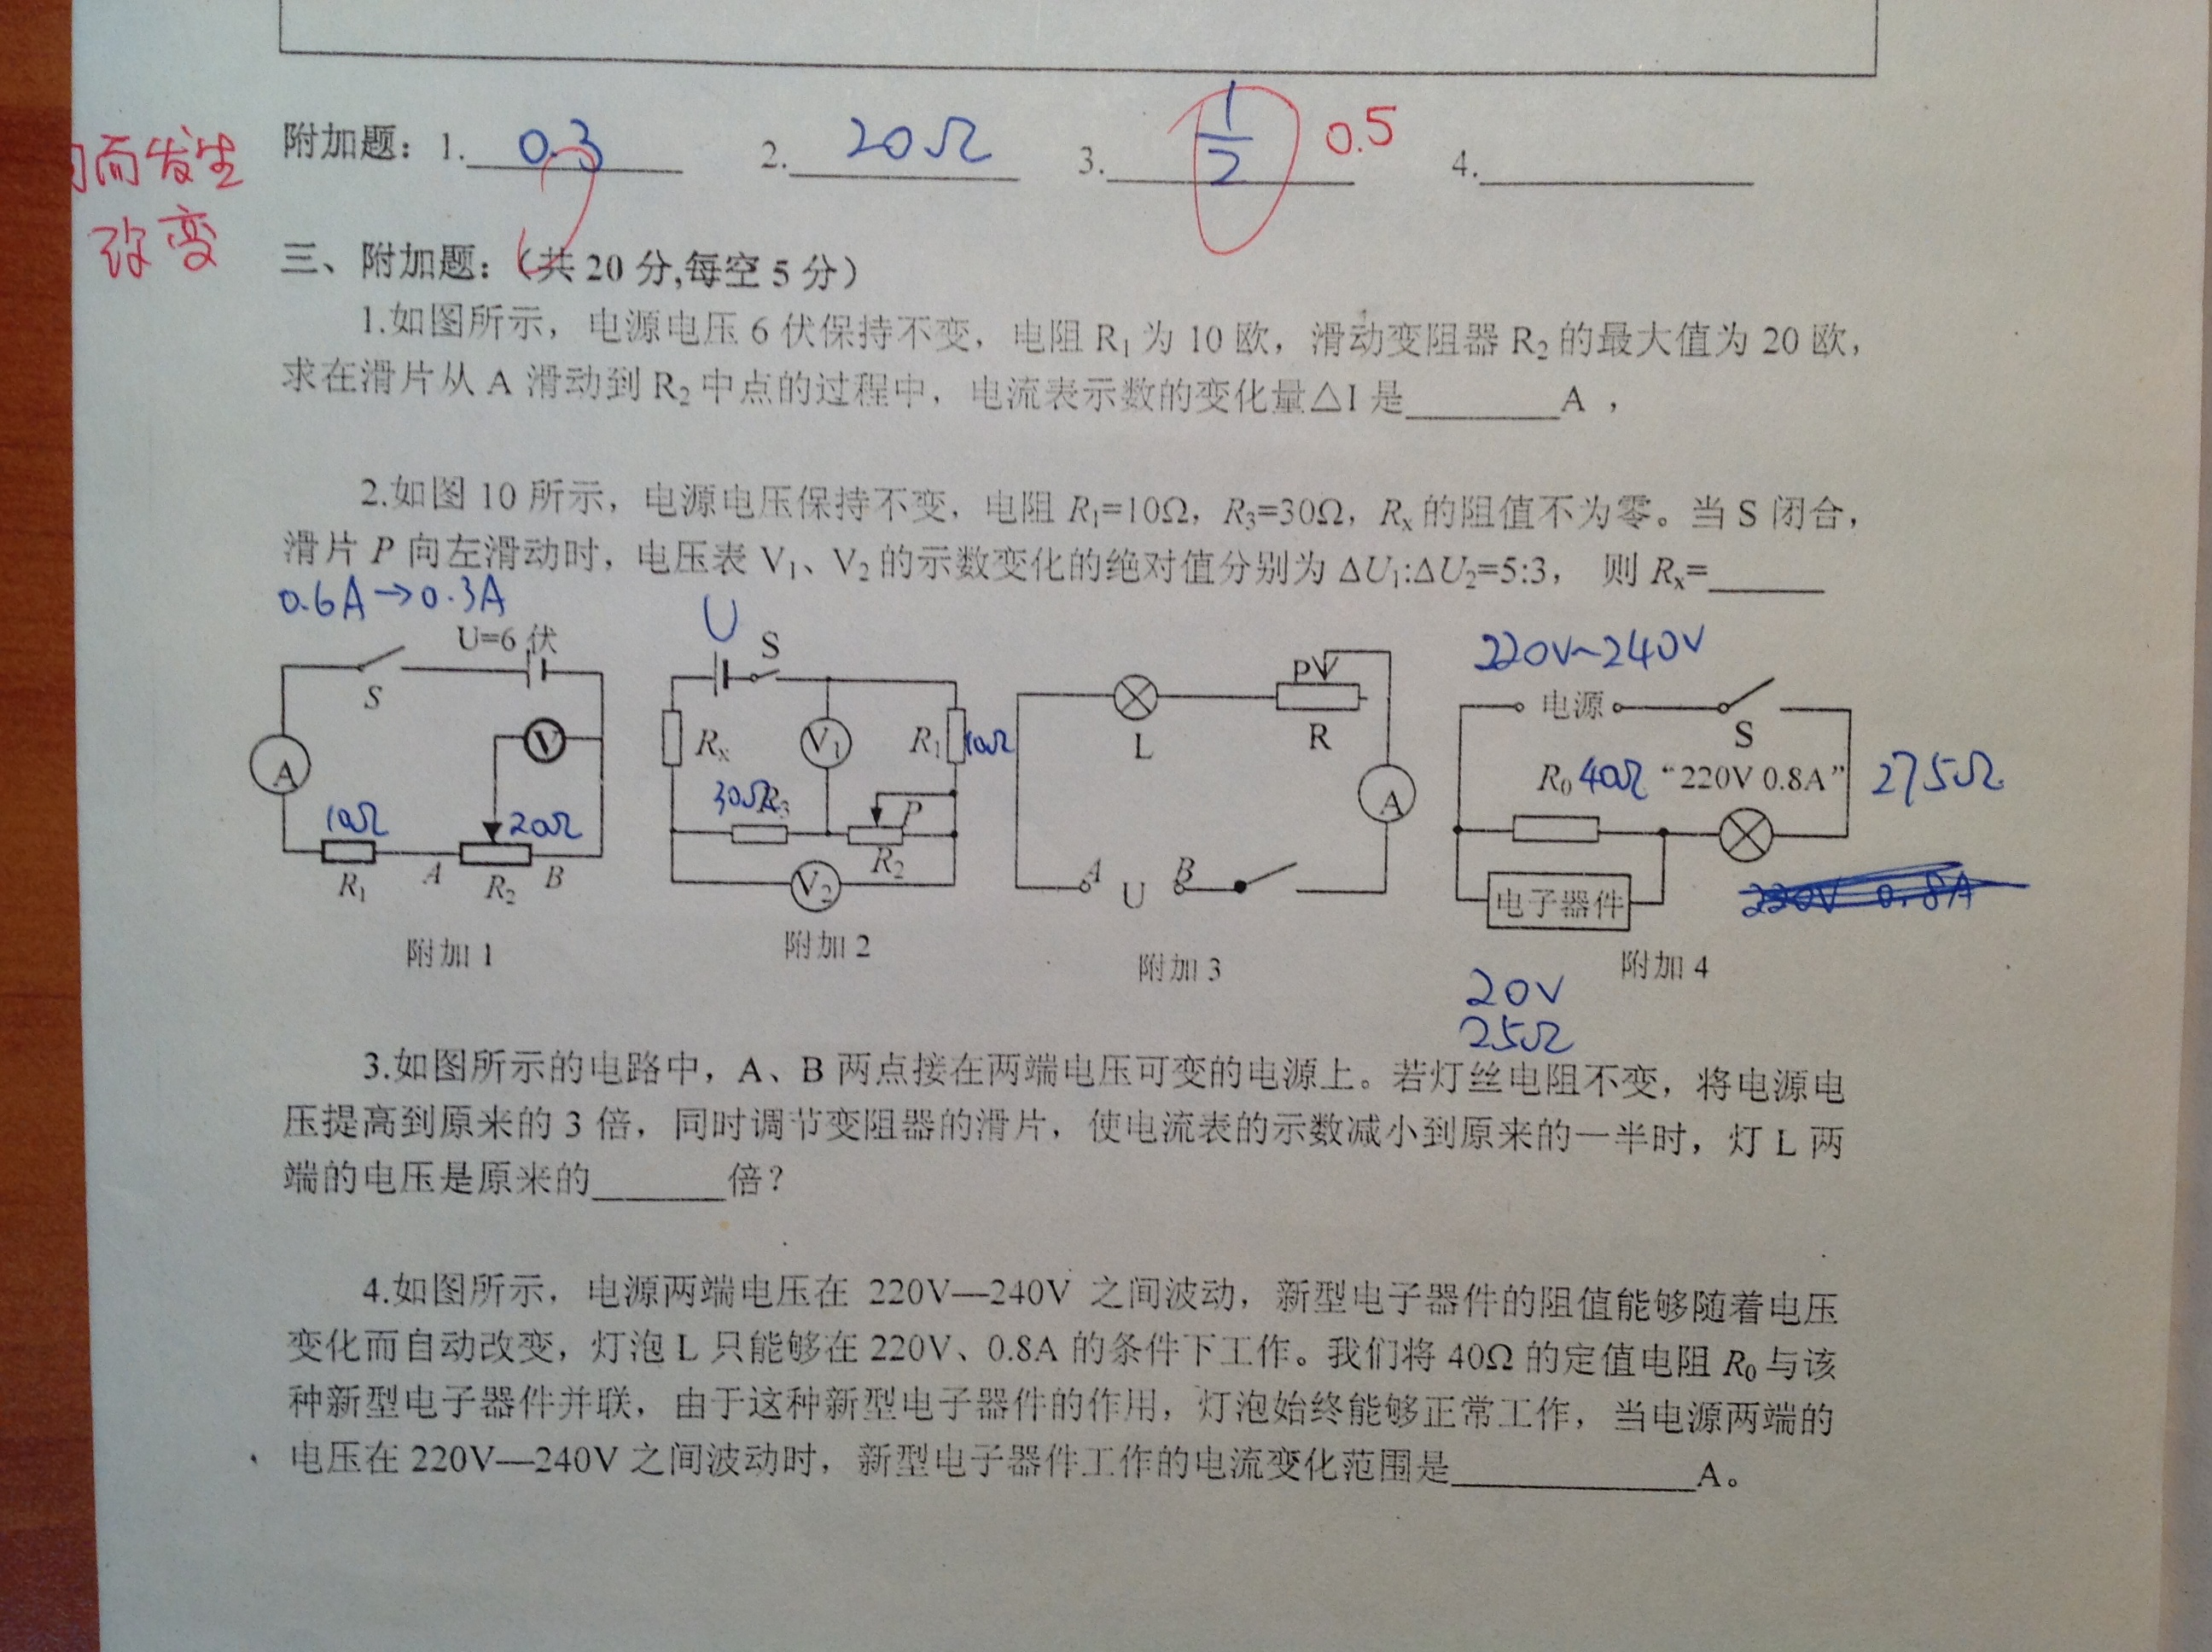 附加题：1. 0.3 2. 20Ω 3. 1/2 0.5 4.
而发生
改变
三、附加题：（共 20 分,每空 5 分）
1.如图所示，电源电压 6 伏保持不变，电阻 R₁ 为 10 欧，滑动变阻器 R₂ 的最大值为 20 欧，
求在滑片从 A 滑动到 R₂ 中点的过程中，电流表示数的变化量△I 是______A ，
2.如图 10 所示，电源电压保持不变，电阻 R₁=10Ω，R₃=30Ω，Rₓ 的阻值不为零。当 S 闭合，
滑片 P 向左滑动时，电压表 V₁、V₂ 的示数变化的绝对值分别为 ΔU₁:ΔU₂=5:3， 则 Rₓ=______
0.6A→0.3A
U=6 伏
S
A
V
10Ω
20Ω
R₁ A R₂ B
附加 1
U
S
Rₓ V₁ R₁ 10Ω
30Ω R₃ P
R₂
V₂
附加 2
P
L R
A
A U B
附加 3
220V~240V
电源 S
R₀ 40Ω “220V 0.8A” 275Ω
电子器件
220V 0.8A
附加 4
20V
25Ω
3.如图所示的电路中，A、B 两点接在两端电压可变的电源上。若灯丝电阻不变，将电源电
压提高到原来的 3 倍，同时调节变阻器的滑片，使电流表的示数减小到原来的一半时，灯 L 两
端的电压是原来的______倍？
4.如图所示，电源两端电压在 220V—240V 之间波动，新型电子器件的阻值能够随着电压
变化而自动改变，灯泡 L 只能够在 220V、0.8A 的条件下工作。我们将 40Ω 的定值电阻 R₀ 与该
种新型电子器件并联，由于这种新型电子器件的作用，灯泡始终能够正常工作，当电源两端的
电压在 220V—240V 之间波动时，新型电子器件工作的电流变化范围是__________A。